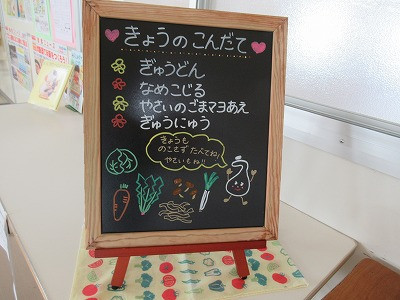 きょうのこんだて
ぎゅうどん
なめこじる
やさいのごまマヨあえ
ぎゅうにゅう
きょうも
のこさず たべてね!
やさいもね!!